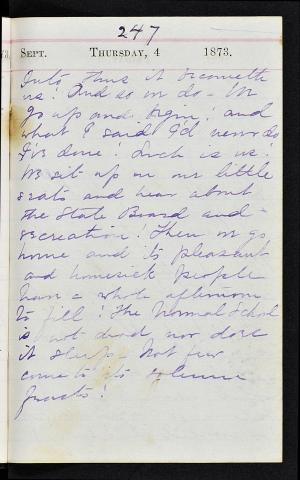 247
SEPT. THURSDAY, 4 1873.
But thus it becometh
us! And so we do - We
go up and begin! and
what I said I'd never do
I've done! Such is us!
We sit up in our little
seats and hear about
the State Board and -
recreation! Then we go
home and its pleasant
and homesick people
have a whole afternoon
to fill! The Normal School
is not dead nor does
it sleep - Not few
come to its
feasts!